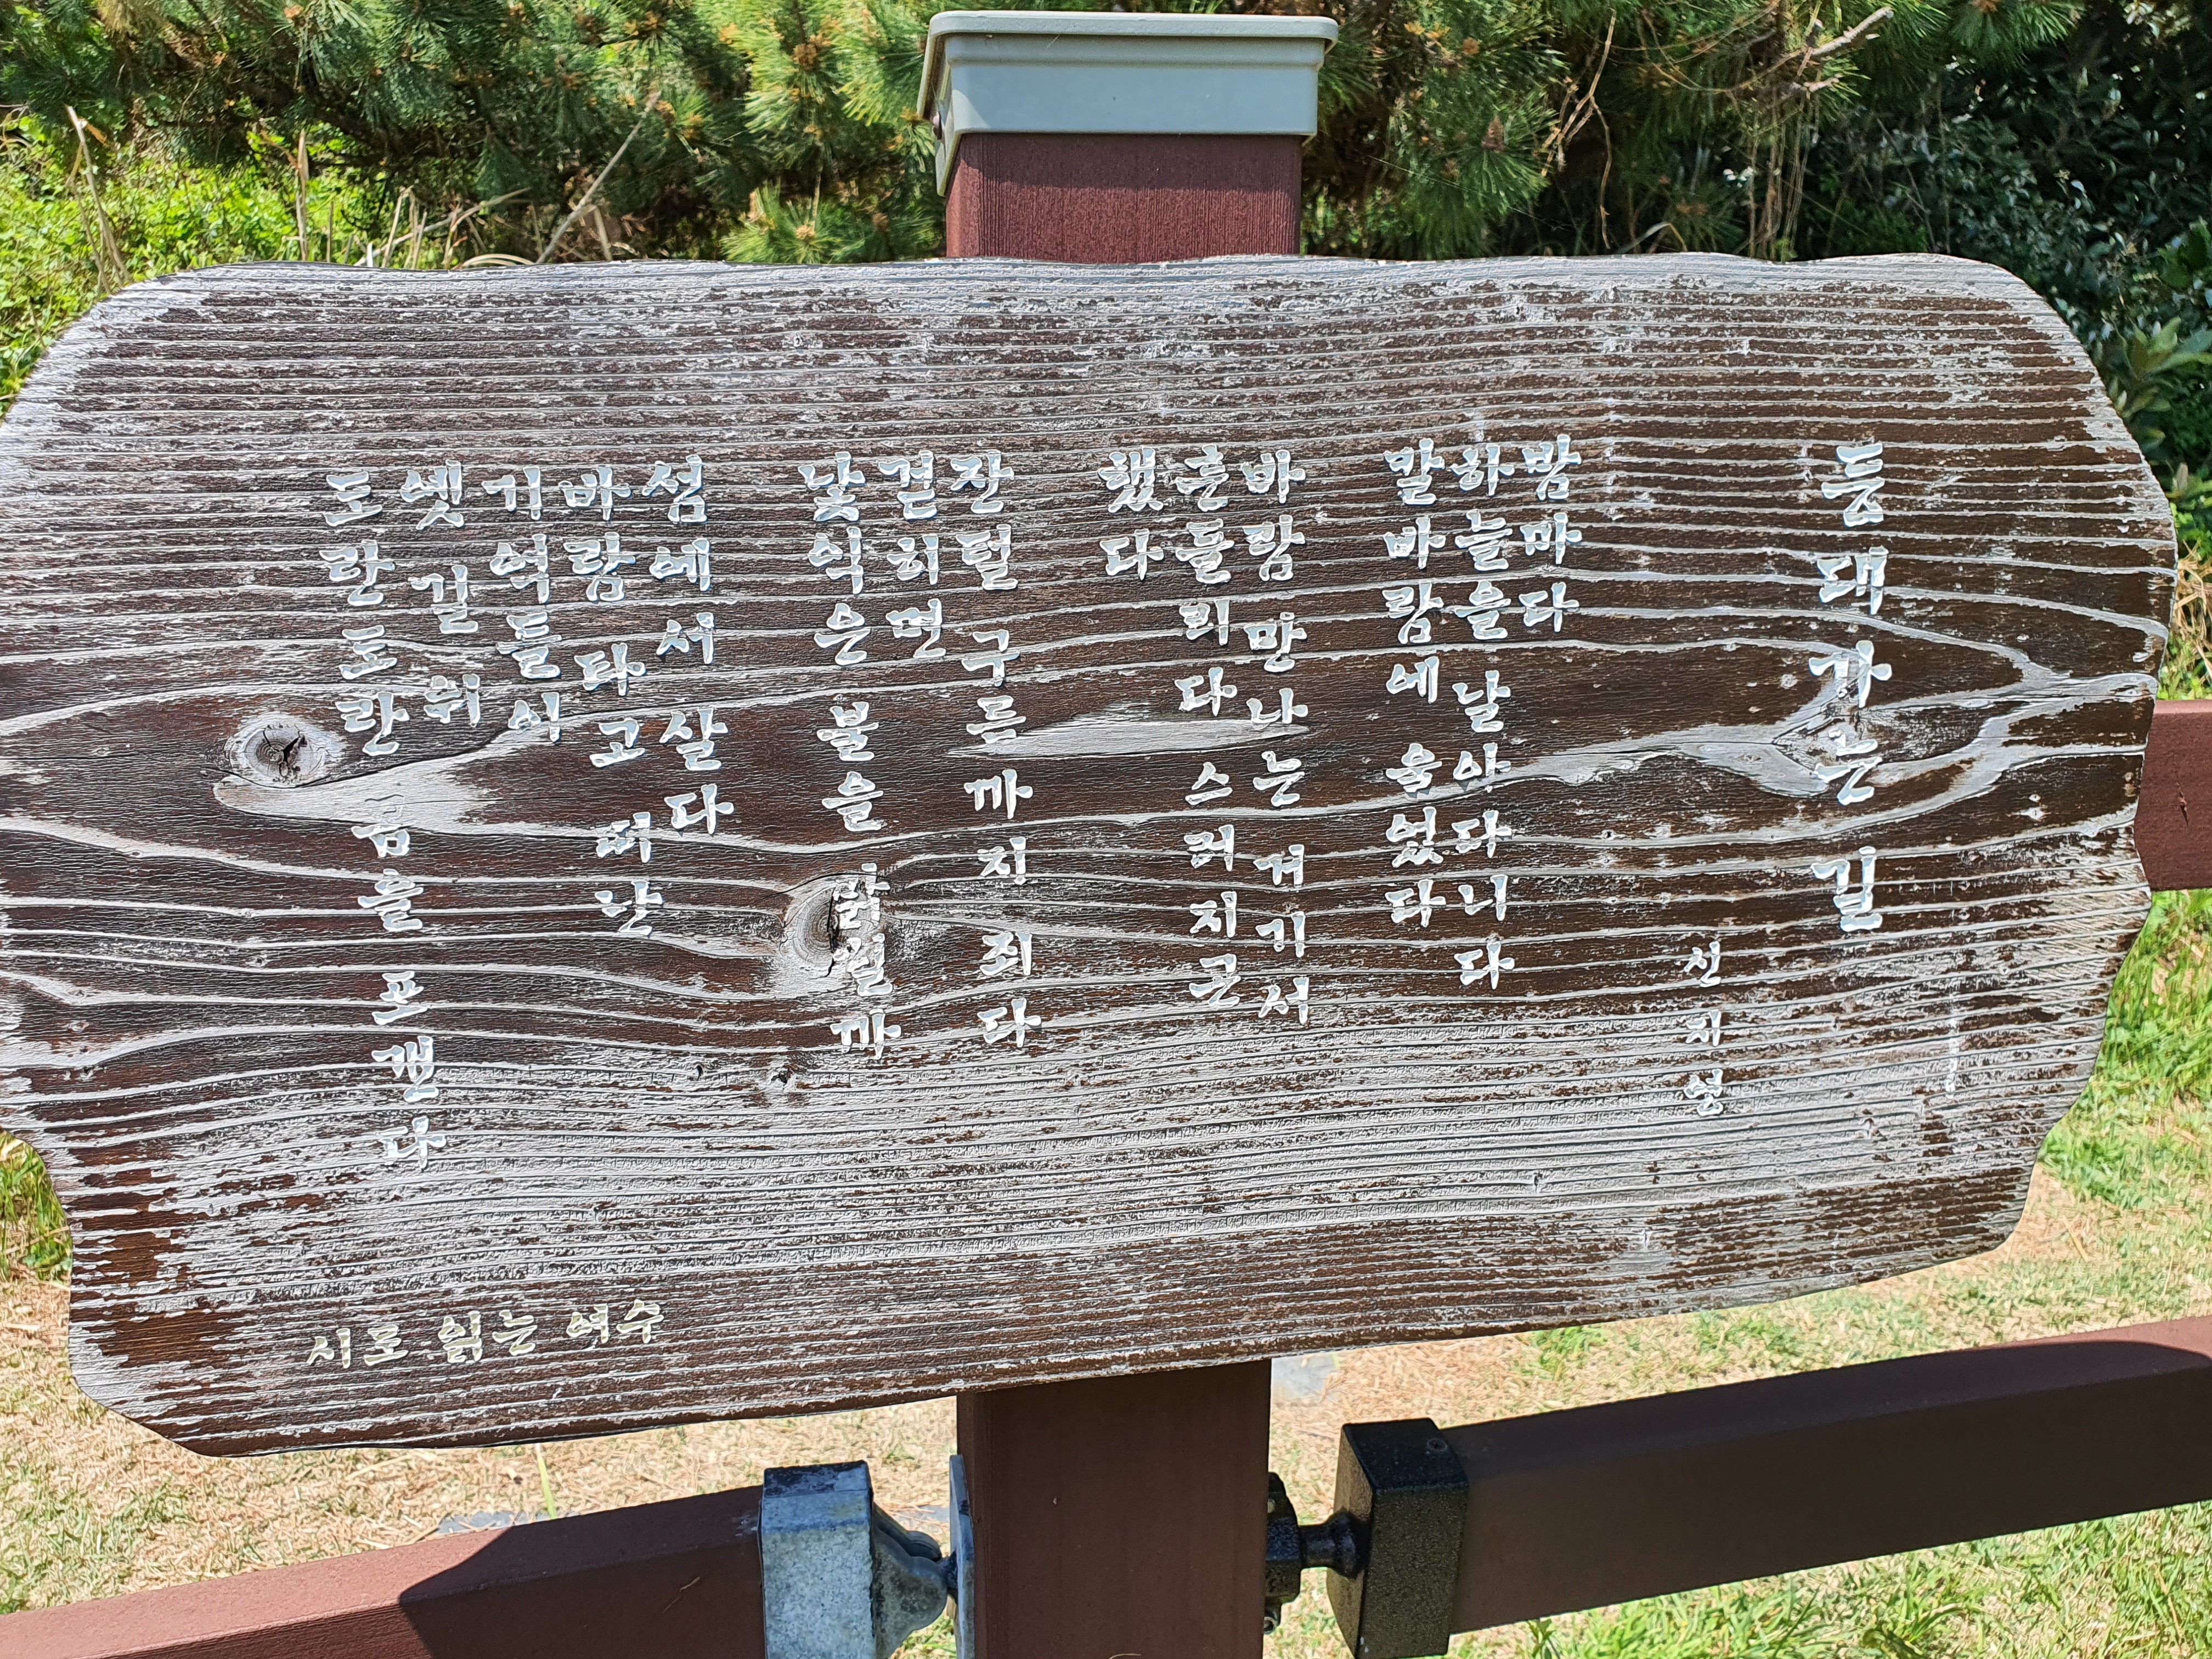 등대 가는 길
밤마다
하늘을 날아다니다
말바람에 울었다
바람만 나는 거기서
흔들리다 스러지곤
했다
잔털 구름까지 죄다
걷히면
낯익은 불을 밝힐까
섬에서 살다
바람 타고 떠난
기억들이
옛길 위
도란도란 몸을 포갠다
시로 읽는 여수